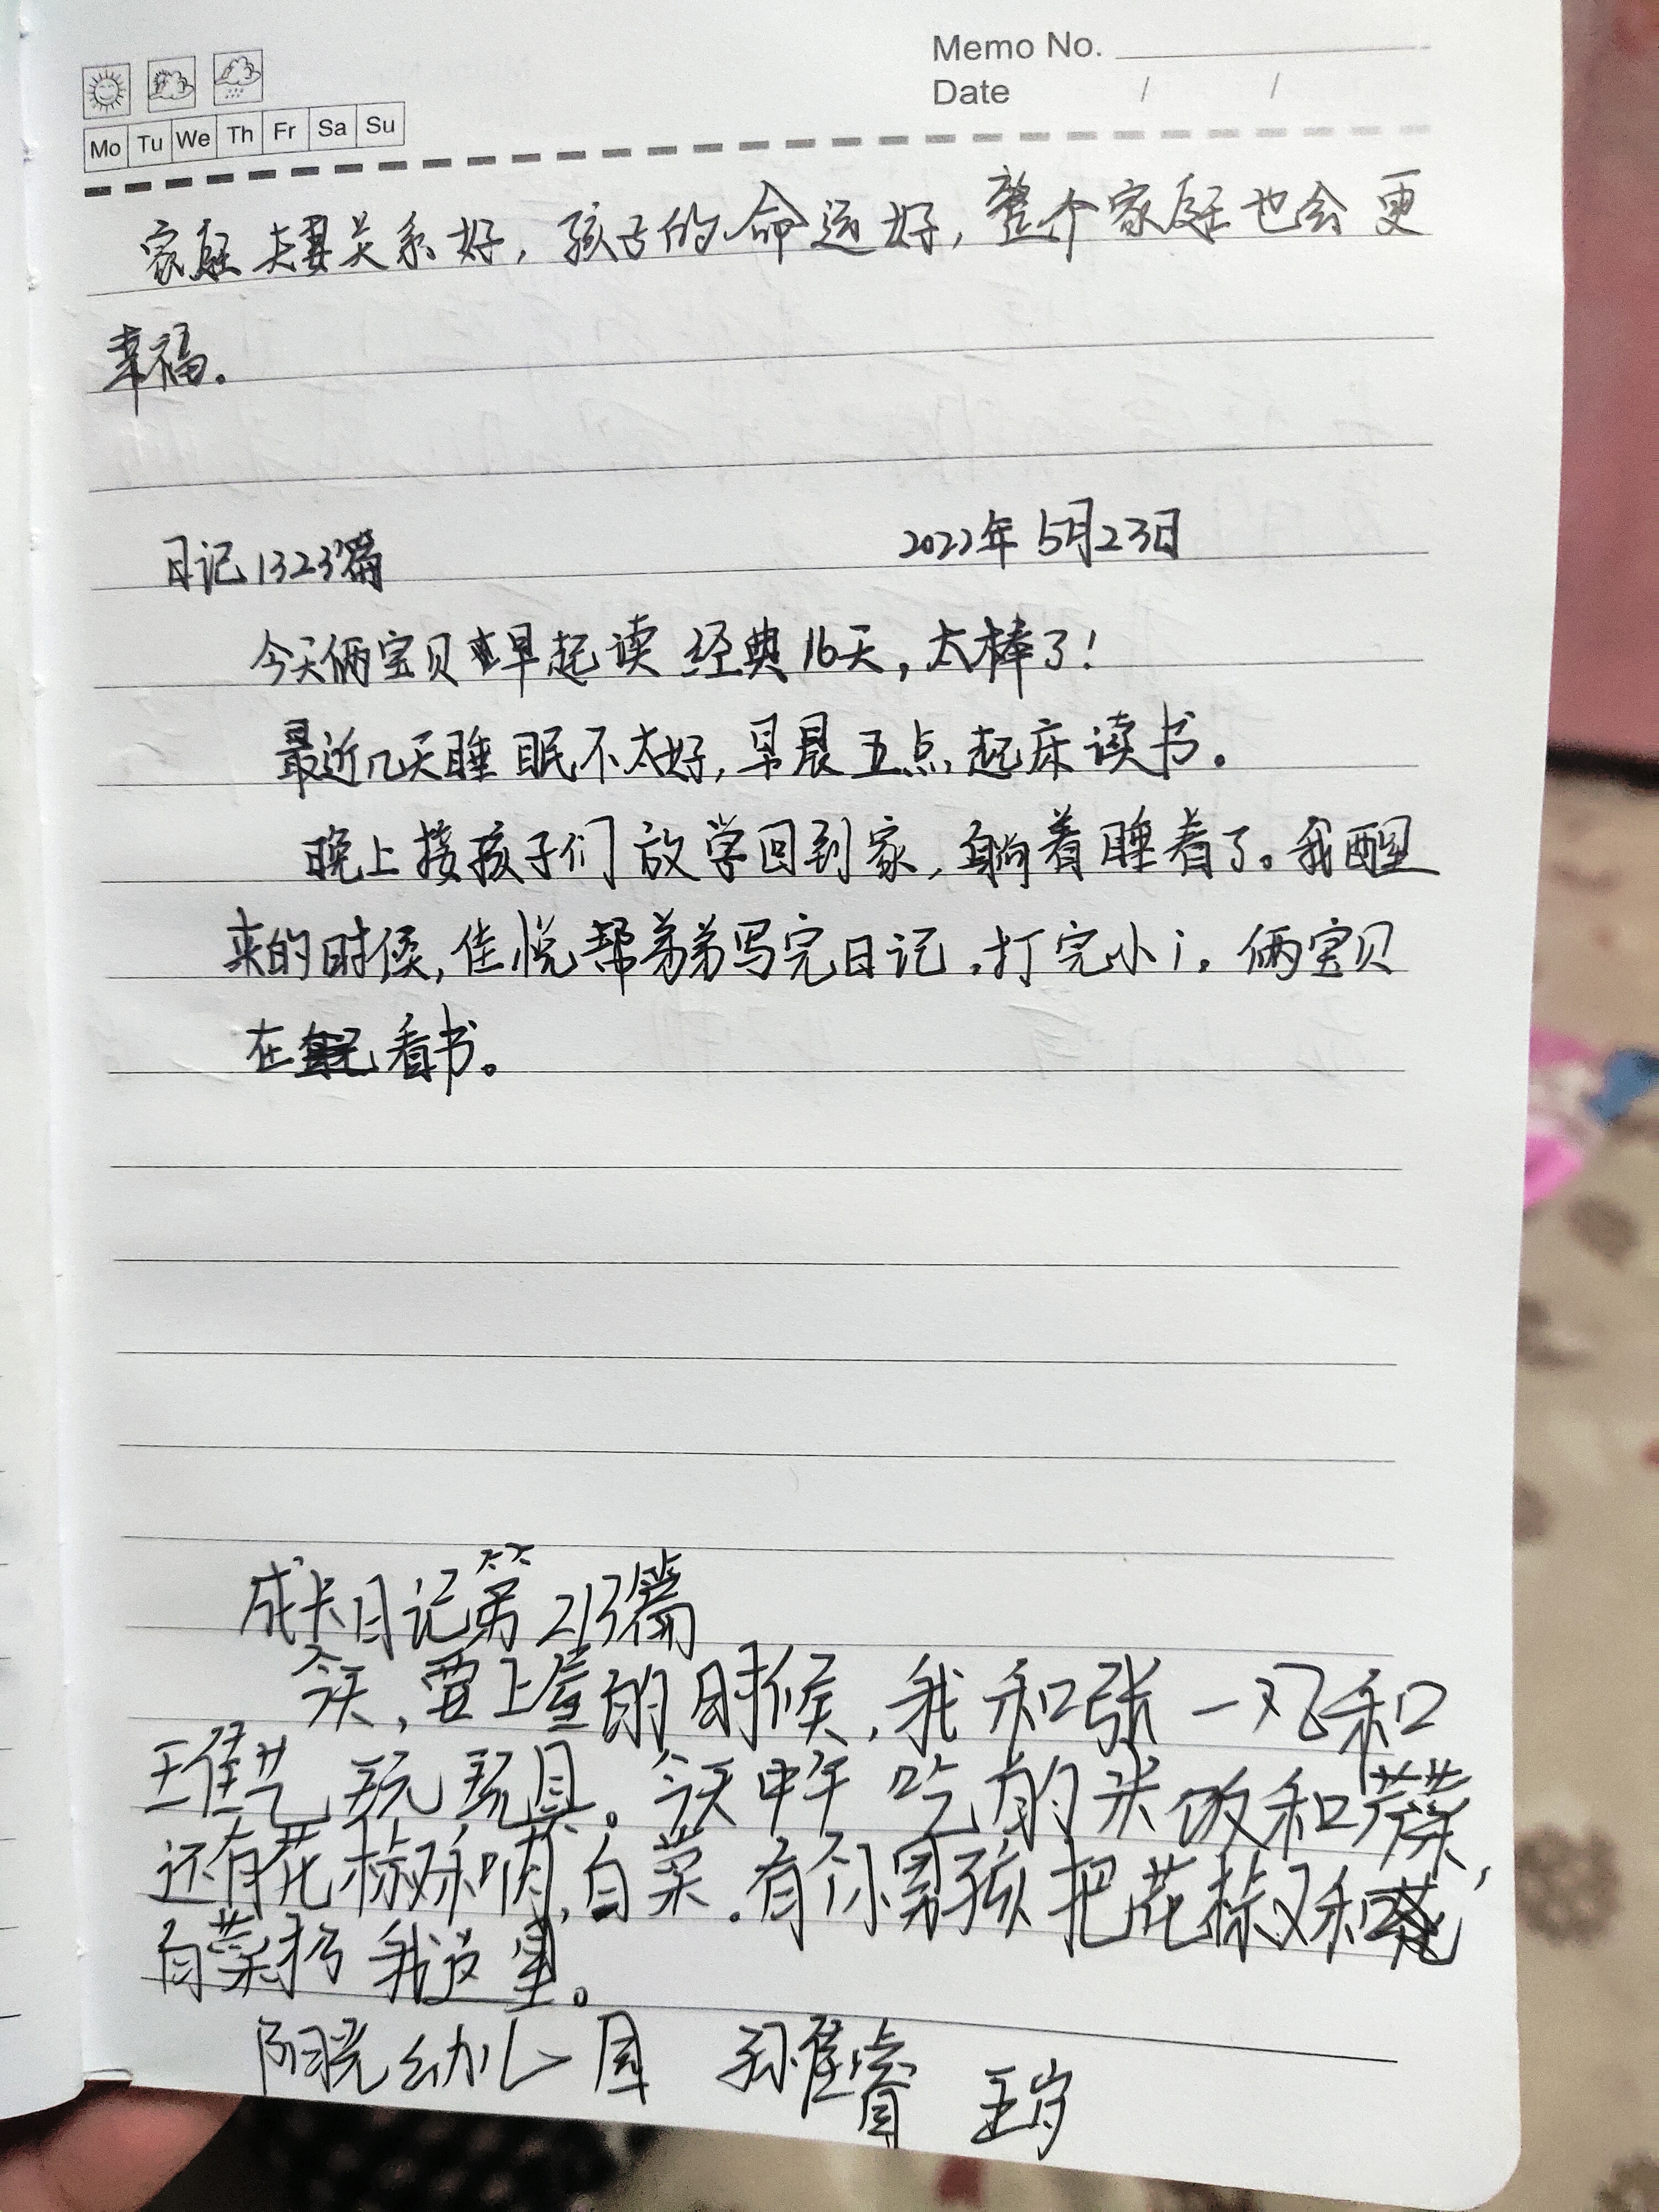 Memo No.
Date / /
Mo Tu We Th Fr Sa Su
家庭夫妻关系好，孩子的命运好，整个家庭也会更
幸福。
日记1323篇 2022年5月23日
今天俩宝贝早起读经典16天，太棒了！
最近几天睡眠不太好，早晨五点起床读书。
晚上接孩子们放学回到家，躺着睡着了。我醒
来的时候，佳悦帮弟弟写完日记，打完小i。俩宝贝
在看书。
成长日记第213篇
今天，要上座的时候，我和张一凡和
王佳艺玩玩具。今天中午吃的米饭和菜，
还有花椒和肉，白菜。有个小男孩把花椒和
白菜扔我这里。
阳光幼儿园 孙佳睿 五岁